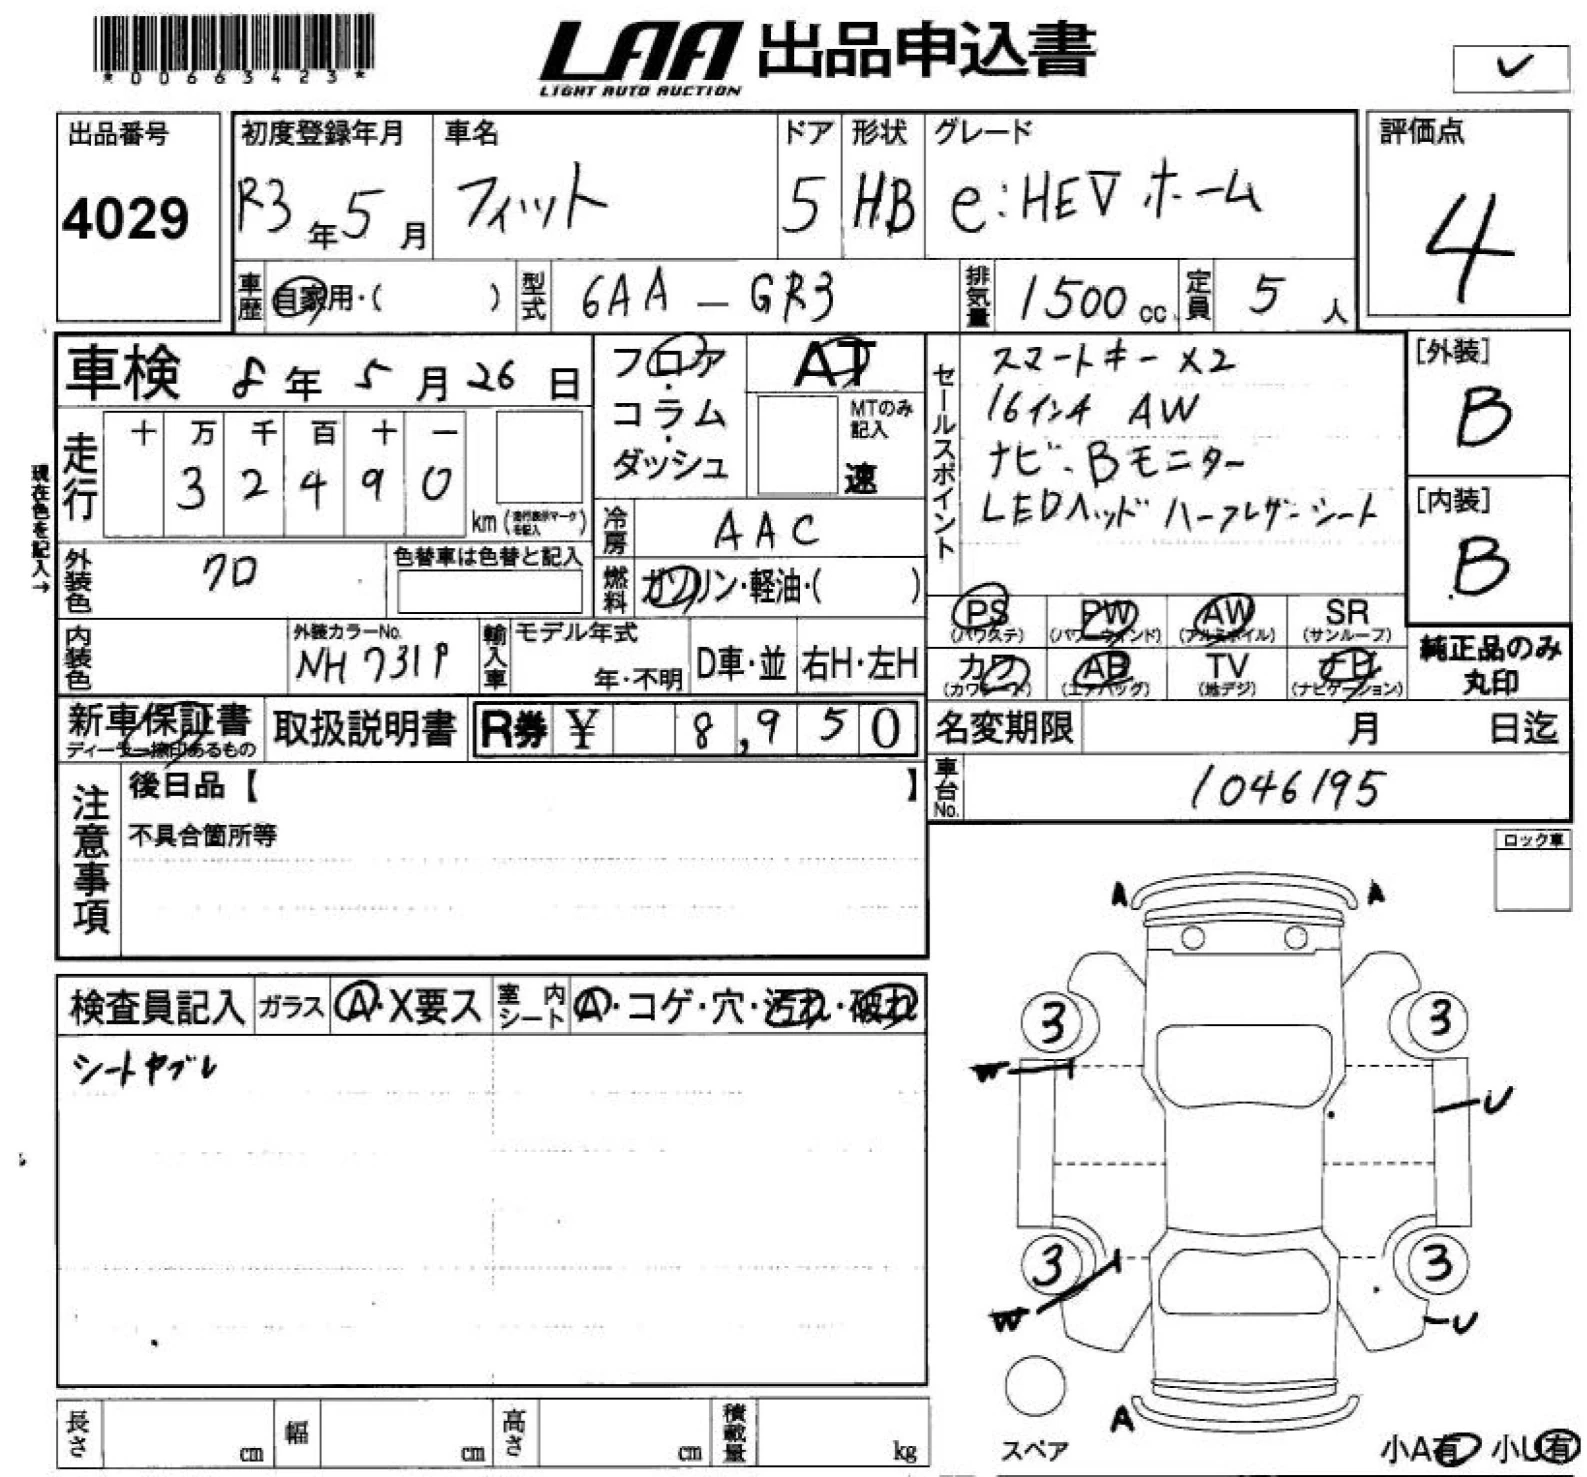 *00663423*
LAA 出品申込書
LIGHT AUTO AUCTION
✓
出品番号
4029
初度登録年月
R3年5月
車名
フィット
ドア
5
形状
HB
グレード
e:HEV ホーム
評価点
4
車歴
自家用・( )
型式
6AA-GR3
排気量
1500cc
定員
5人
車検 8年5月26日
走行
十 万 千 百 十 一
3 2 4 9 0
km(走行表示マークを記入)
現在色を記入→
フロア
・
コラム
・
ダッシュ
AT
MTのみ記入
速
冷房
AAC
燃料
ガソリン・軽油・( )
セールスポイント
スマートキー X2
16インチ AW
ナビ、Bモニター
LEDヘッド ハーフレザーシート
[外装]
B
[内装]
B
外装色
クロ
色替車は色替と記入
内装色
外装カラーNo.
NH731P
輸入車
モデル年式
年・不明
D車・並
右H・左H
PS
(パワステ)
PW
(パワーウインド)
AW
(アルミホイル)
SR
(サンルーフ)
カワ
(カワシート)
AB
(エアバッグ)
TV
(地デジ)
ナビ
(ナビゲーション)
純正品のみ
丸印
新車保証書
ディーラー捺印あるもの
取扱説明書
R券 ¥ 8,950
名変期限 月 日迄
車台No.
1046195
注意事項
後日品【 】
不具合箇所等
ロック車
検査員記入
ガラス
A・X要ス
室内シート
A・コゲ・穴・汚れ・破れ
シートヤブレ
A
A
3
3
W
U
3
3
W
U
A
スペア
小A有 小U有
長さ
cm
幅
cm
高さ
cm
積載量
kg